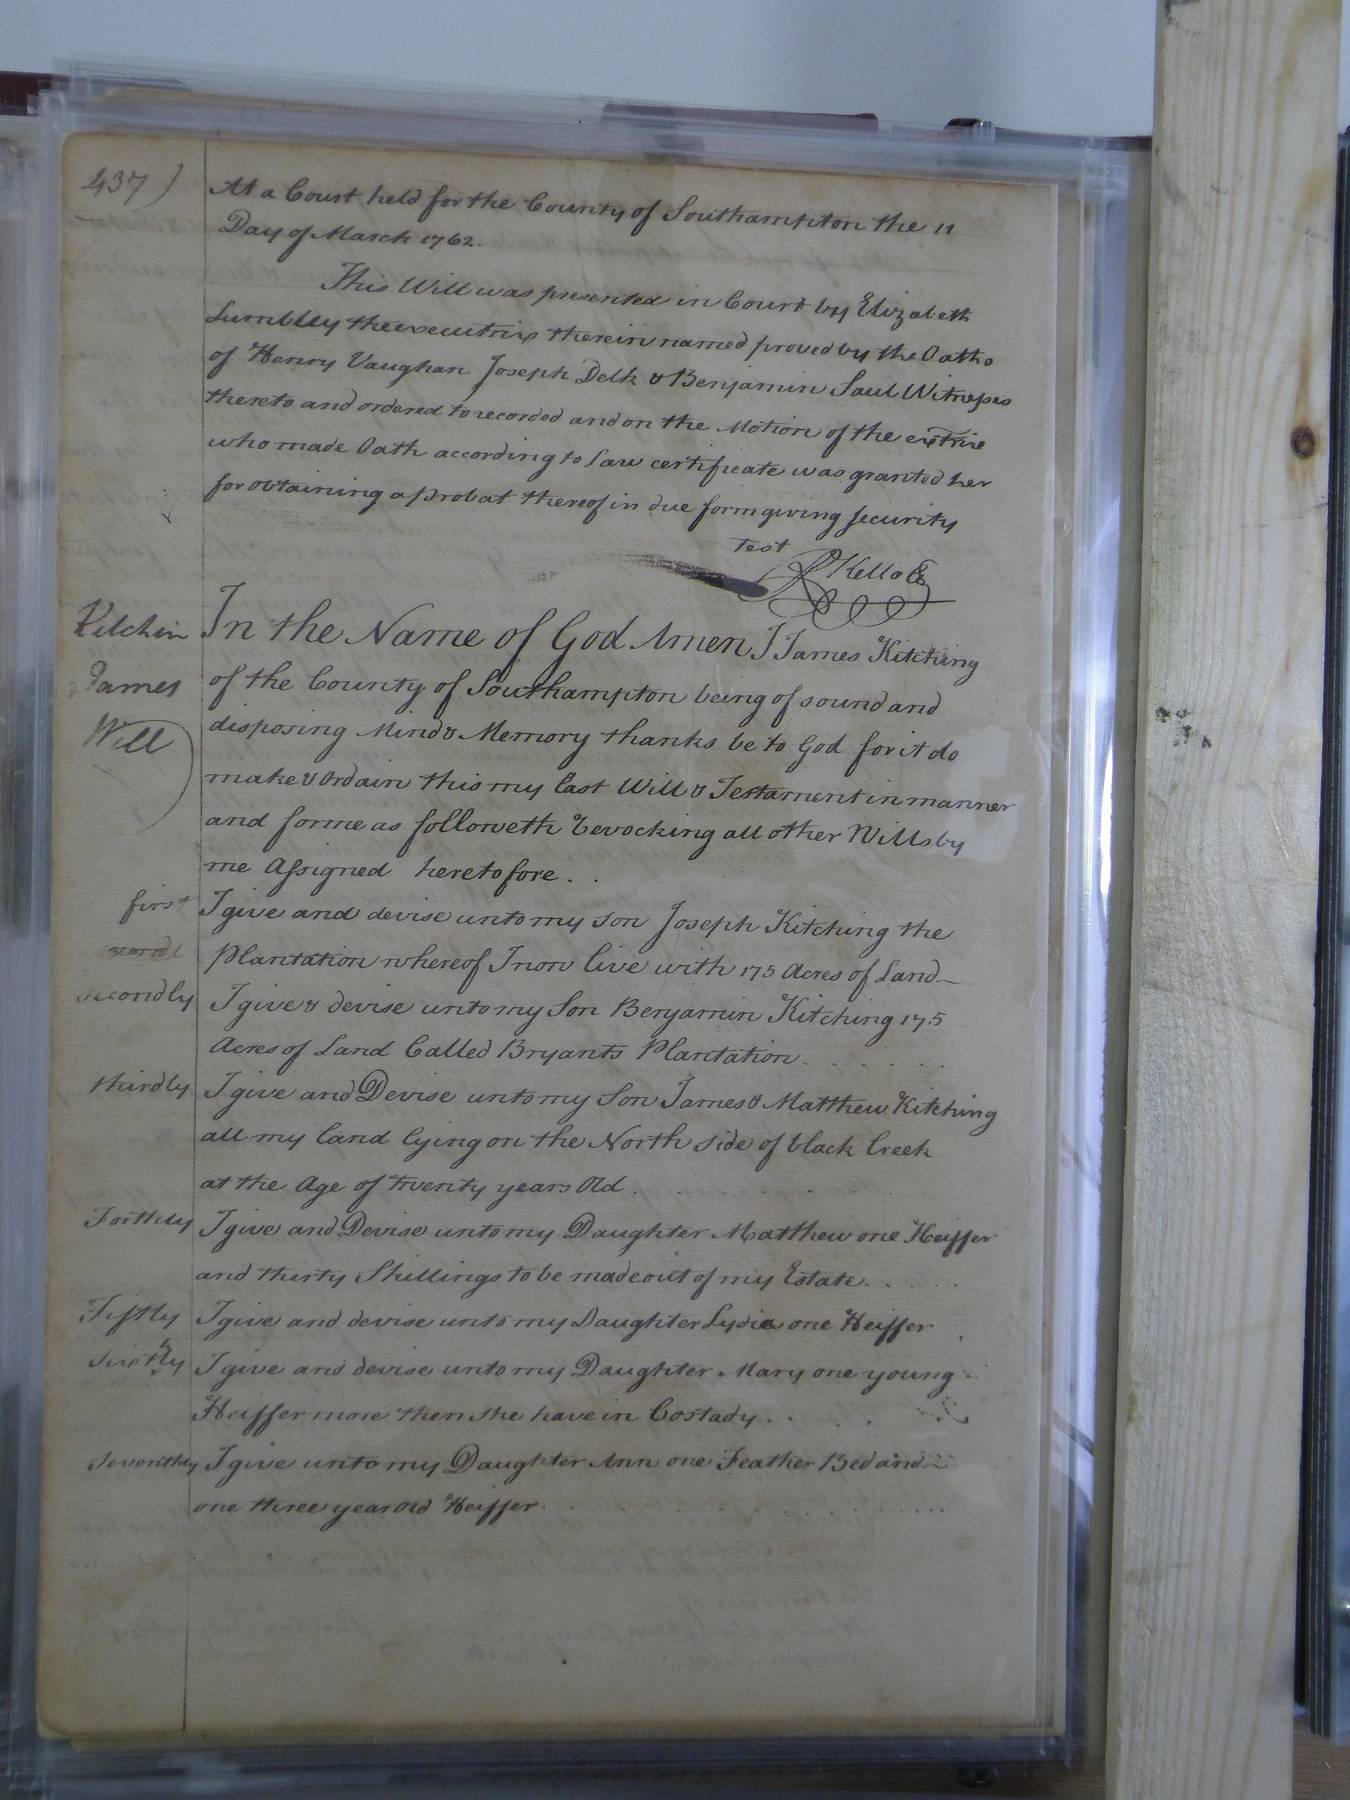 437)
At a Court held for the County of Southampton the 11
Day of March 1762.
This Will was presented in Court by Elizabeth
Lumbley the executrix therein named proved by the Oaths
of Henry Vaughan Joseph Delk & Benjamin Saul Witnesses
thereto and ordered to recorded and on the Motion of the extrix
who made Oath according to Law certificate was granted her
for obtaining a probat thereof in due form giving security
Test
R Kello Cl
Kitchin
James
Will
In the Name of God Amen I James Kitching
of the County of Southampton being of sound and
disposing Mind & Memory thanks be to God for it do
make & Ordain this my last Will & Testament in manner
and forme as followeth revocking all other Wills by
me Assigned heretofore . .
first I give and devise unto my son Joseph Kitching the
Plantation whereof I now live with 175 Acres of Land
secondly I give & devise unto my Son Benjamin Kitching 175
Acres of Land Called Bryants Plantation
thirdly I give and Devise unto my Son James & Matthew Kitching
all my land lying on the North side of black Creek
at the Age of twenty years Old
Forthly I give and Devise unto my Daughter Matthew one Heiffer
and thirty Shillings to be made out of my Estate
Fiftly I give and devise unto my Daughter Lydia one Heiffer
sixthly I give and devise unto my Daughter Mary one young
Heiffer more then she have in Costady
seventhly I give unto my Daughter Ann one Feather Bed and
one three year old Heiffer